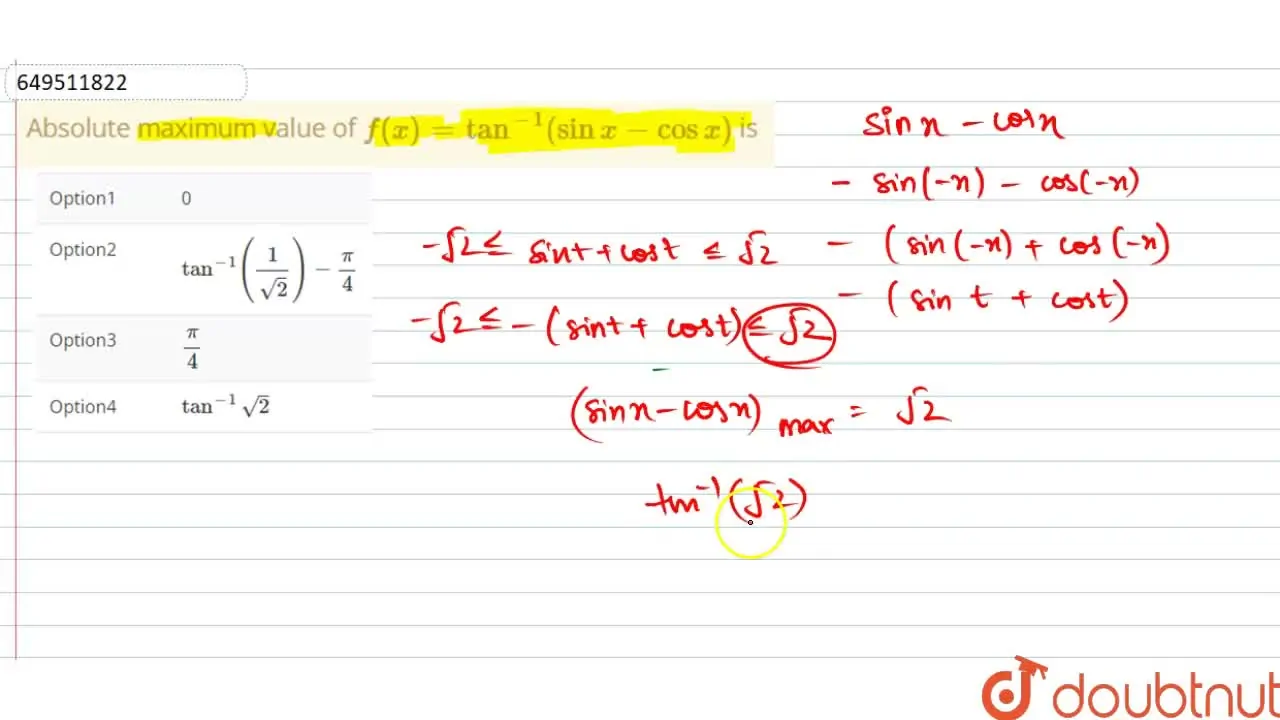 649511822
Absolute maximum value of f(x) = tan⁻¹(sin x − cos x) is
Option1 0
Option2 tan⁻¹(1/√2) − π/4
Option3 π/4
Option4 tan⁻¹ √2
sin x − cos x
− sin(−x) − cos(−x)
− (sin(−x) + cos(−x)
− (sin t + cost)
−√2 ≤ sint + cost ≤ √2
−√2 ≤ − (sint + cost) ≤ √2
(sinx − cosx) max = √2
tan⁻¹(√2)
doubtnut